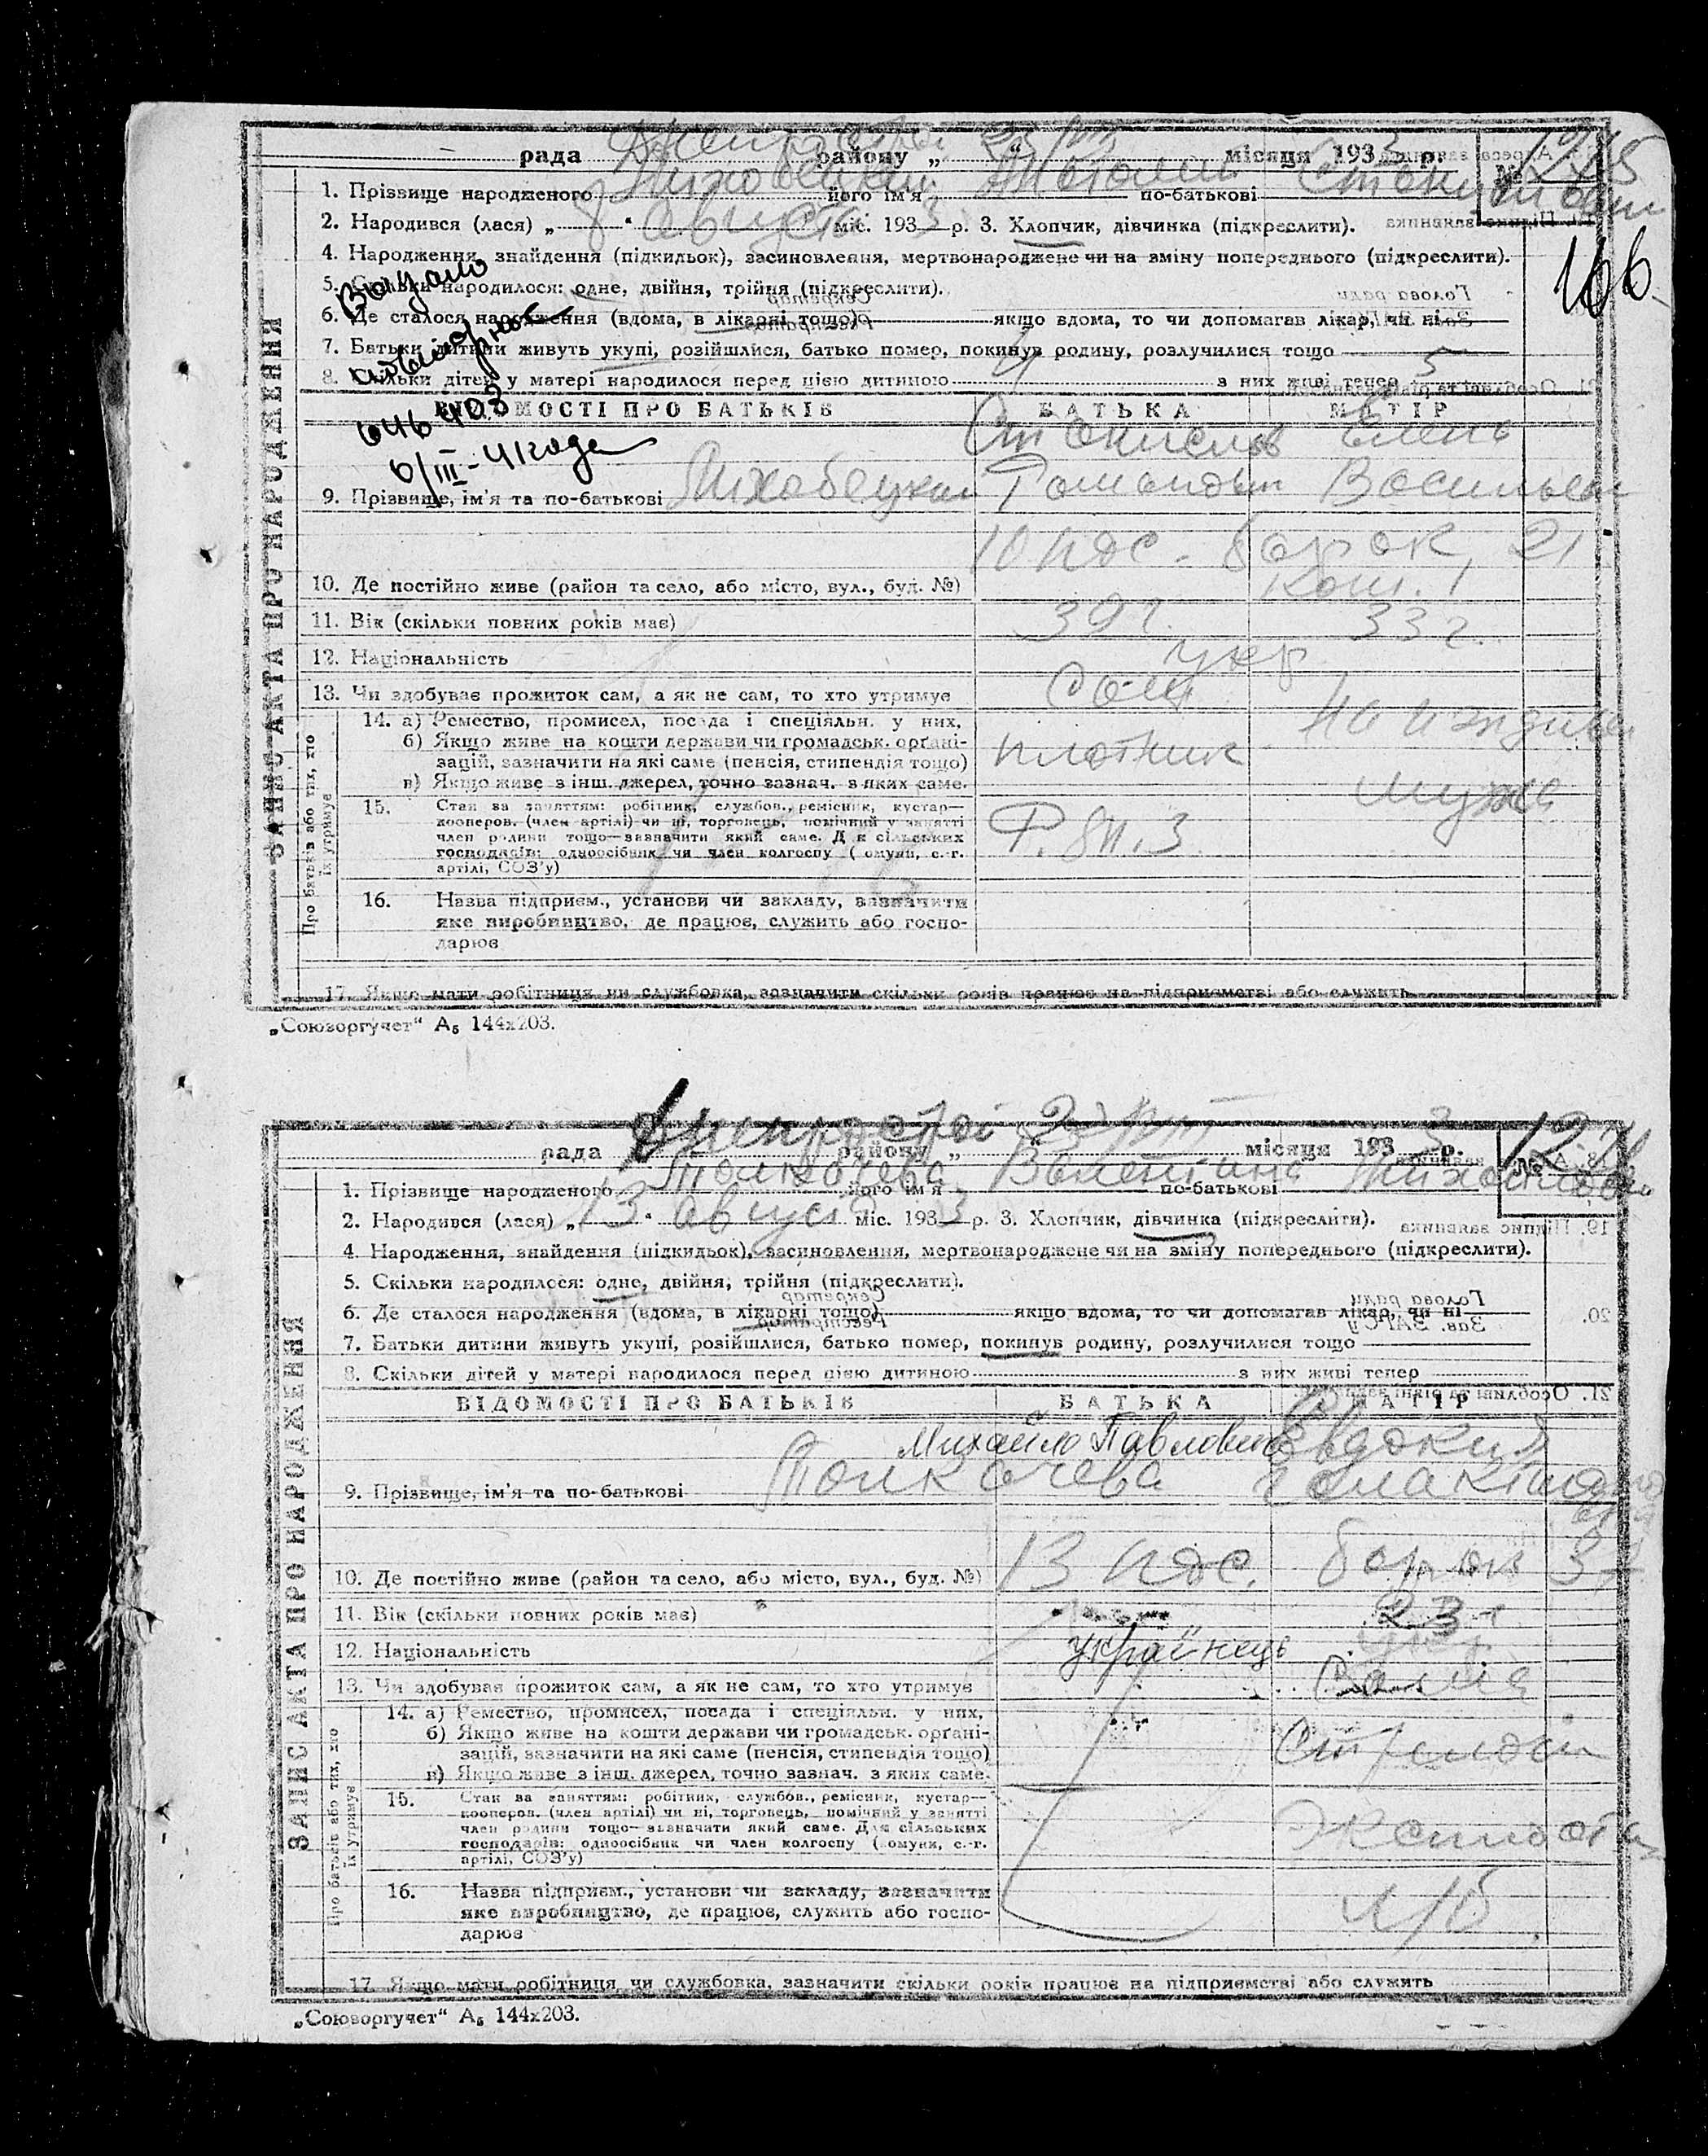 рада Днепрострой району „ 23/VIII “ місяця 1933 р. № 1245
1. Прізвище народженого його ім'я по-батькові
2. Народився (лася) „ 8 “ августа міс. 1933 р. 3. Хлопчик, дівчинка (підкреслити).
4. Народження, знайдення (підкидьок), засиновлення, мертвонароджене чи на зміну попереднього (підкреслити).
166
Выдано
5. Скільки народилося: одне, двійня, трійня (підкреслити).
6. Де сталося народження (вдома, в лікарні тощо) якщо вдома, то чи допомагав лікар, чи ні
повторное
7. Батьки дитини живуть укупі, розійшлися, батько помер, покинув родину, розлучилися тощо
8. Скільки дітей у матері народилося перед цією дитиною 4 з них живі тепер 5
046403
6/III-41 года
ВІДОМОСТІ ПРО БАТЬКІВ БАТЬКА МАТІР
Станислав Елена
9. Прізвище, ім'я та по-батькові
10 пос. барак 21
10. Де постійно живе (район та село, або місто, вул., буд. №) ком. 1
11. Вік (скільки повних років має) 39 г. 33 г.
12. Національність укр
13. Чи здобуває прожиток сам, а як не сам, то хто утримує сам
ЗАПИС АКТА ПРО НАРОДЖЕННЯ
Про батьків або тих, хто їх утримує
14. а) Ремество, промисел, посада і спеціяльн. у них.
б) Якщо живе на кошти держави чи громадськ. орґані-
зацій, зазначити на які саме (пенсія, стипендія тощо) плотник
в) Якщо живе з інш. джерел, точно зазнач. з яких саме. мужа
15. Стан за заняттям: робітник, службов., ремісник, кустар—
кооперов. (член артілі) чи ні, торговець, помічний у занятті
член родини тощо—зазначити який саме. Для сільських
господарів: одноосібник чи член колгоспу (комуни, с.-г.
артілі, СОЗ'у)
16. Назва підприєм., установи чи закладу, зазначити
яке виробництво, де працює, служить або госпо-
дарює
17. Якщо мати робітниця чи службовка, зазначити скільки років працює на підприємстві або служить
„Союзоргучет“ А₅ 144x203.
рада Днепрострой району „ 23/VIII “ місяця 1933 р. №
1. Прізвище народженого Толкачева його ім'я Валентина по-батькові Михайловна
2. Народився (лася) „ 13 “ августа міс. 1933 р. 3. Хлопчик, дівчинка (підкреслити).
4. Народження, знайдення (підкидьок), засиновлення, мертвонароджене чи на зміну попереднього (підкреслити).
5. Скільки народилося: одне, двійня, трійня (підкреслити).
6. Де сталося народження (вдома, в лікарні тощо) якщо вдома, то чи допомагав лікар, чи ні
7. Батьки дитини живуть укупі, розійшлися, батько помер, покинув родину, розлучилися тощо
8. Скільки дітей у матері народилося перед цією дитиною з них живі тепер
ВІДОМОСТІ ПРО БАТЬКІВ БАТЬКА МАТІР
Михайло Павлович Евдокия
9. Прізвище, ім'я та по-батькові Толкачева
13 пос. барак
10. Де постійно живе (район та село, або місто, вул., буд. №)
11. Вік (скільки повних років має) 23
12. Національність українець укр.
13. Чи здобуває прожиток сам, а як не сам, то хто утримує Сама
ЗАПИС АКТА ПРО НАРОДЖЕННЯ
Про батьків або тих, хто їх утримує
14. а) Ремество, промисел, посада і спеціяльн. у них.
б) Якщо живе на кошти держави чи громадськ. орґані-
зацій, зазначити на які саме (пенсія, стипендія тощо)
в) Якщо живе з інш. джерел, точно зазнач. з яких саме.
15. Стан за заняттям: робітник, службов., ремісник, кустар—
кооперов. (член артілі) чи ні, торговець, помічний у занятті
член родини тощо—зазначити який саме. Для сільських
господарів: одноосібник чи член колгоспу (комуни, с.-г.
артілі, СОЗ'у)
16. Назва підприєм., установи чи закладу, зазначити
яке виробництво, де працює, служить або госпо-
дарює
17. Якщо мати робітниця чи службовка, зазначити скільки років працює на підприємстві або служить
„Союзоргучет“ А₅ 144x203.